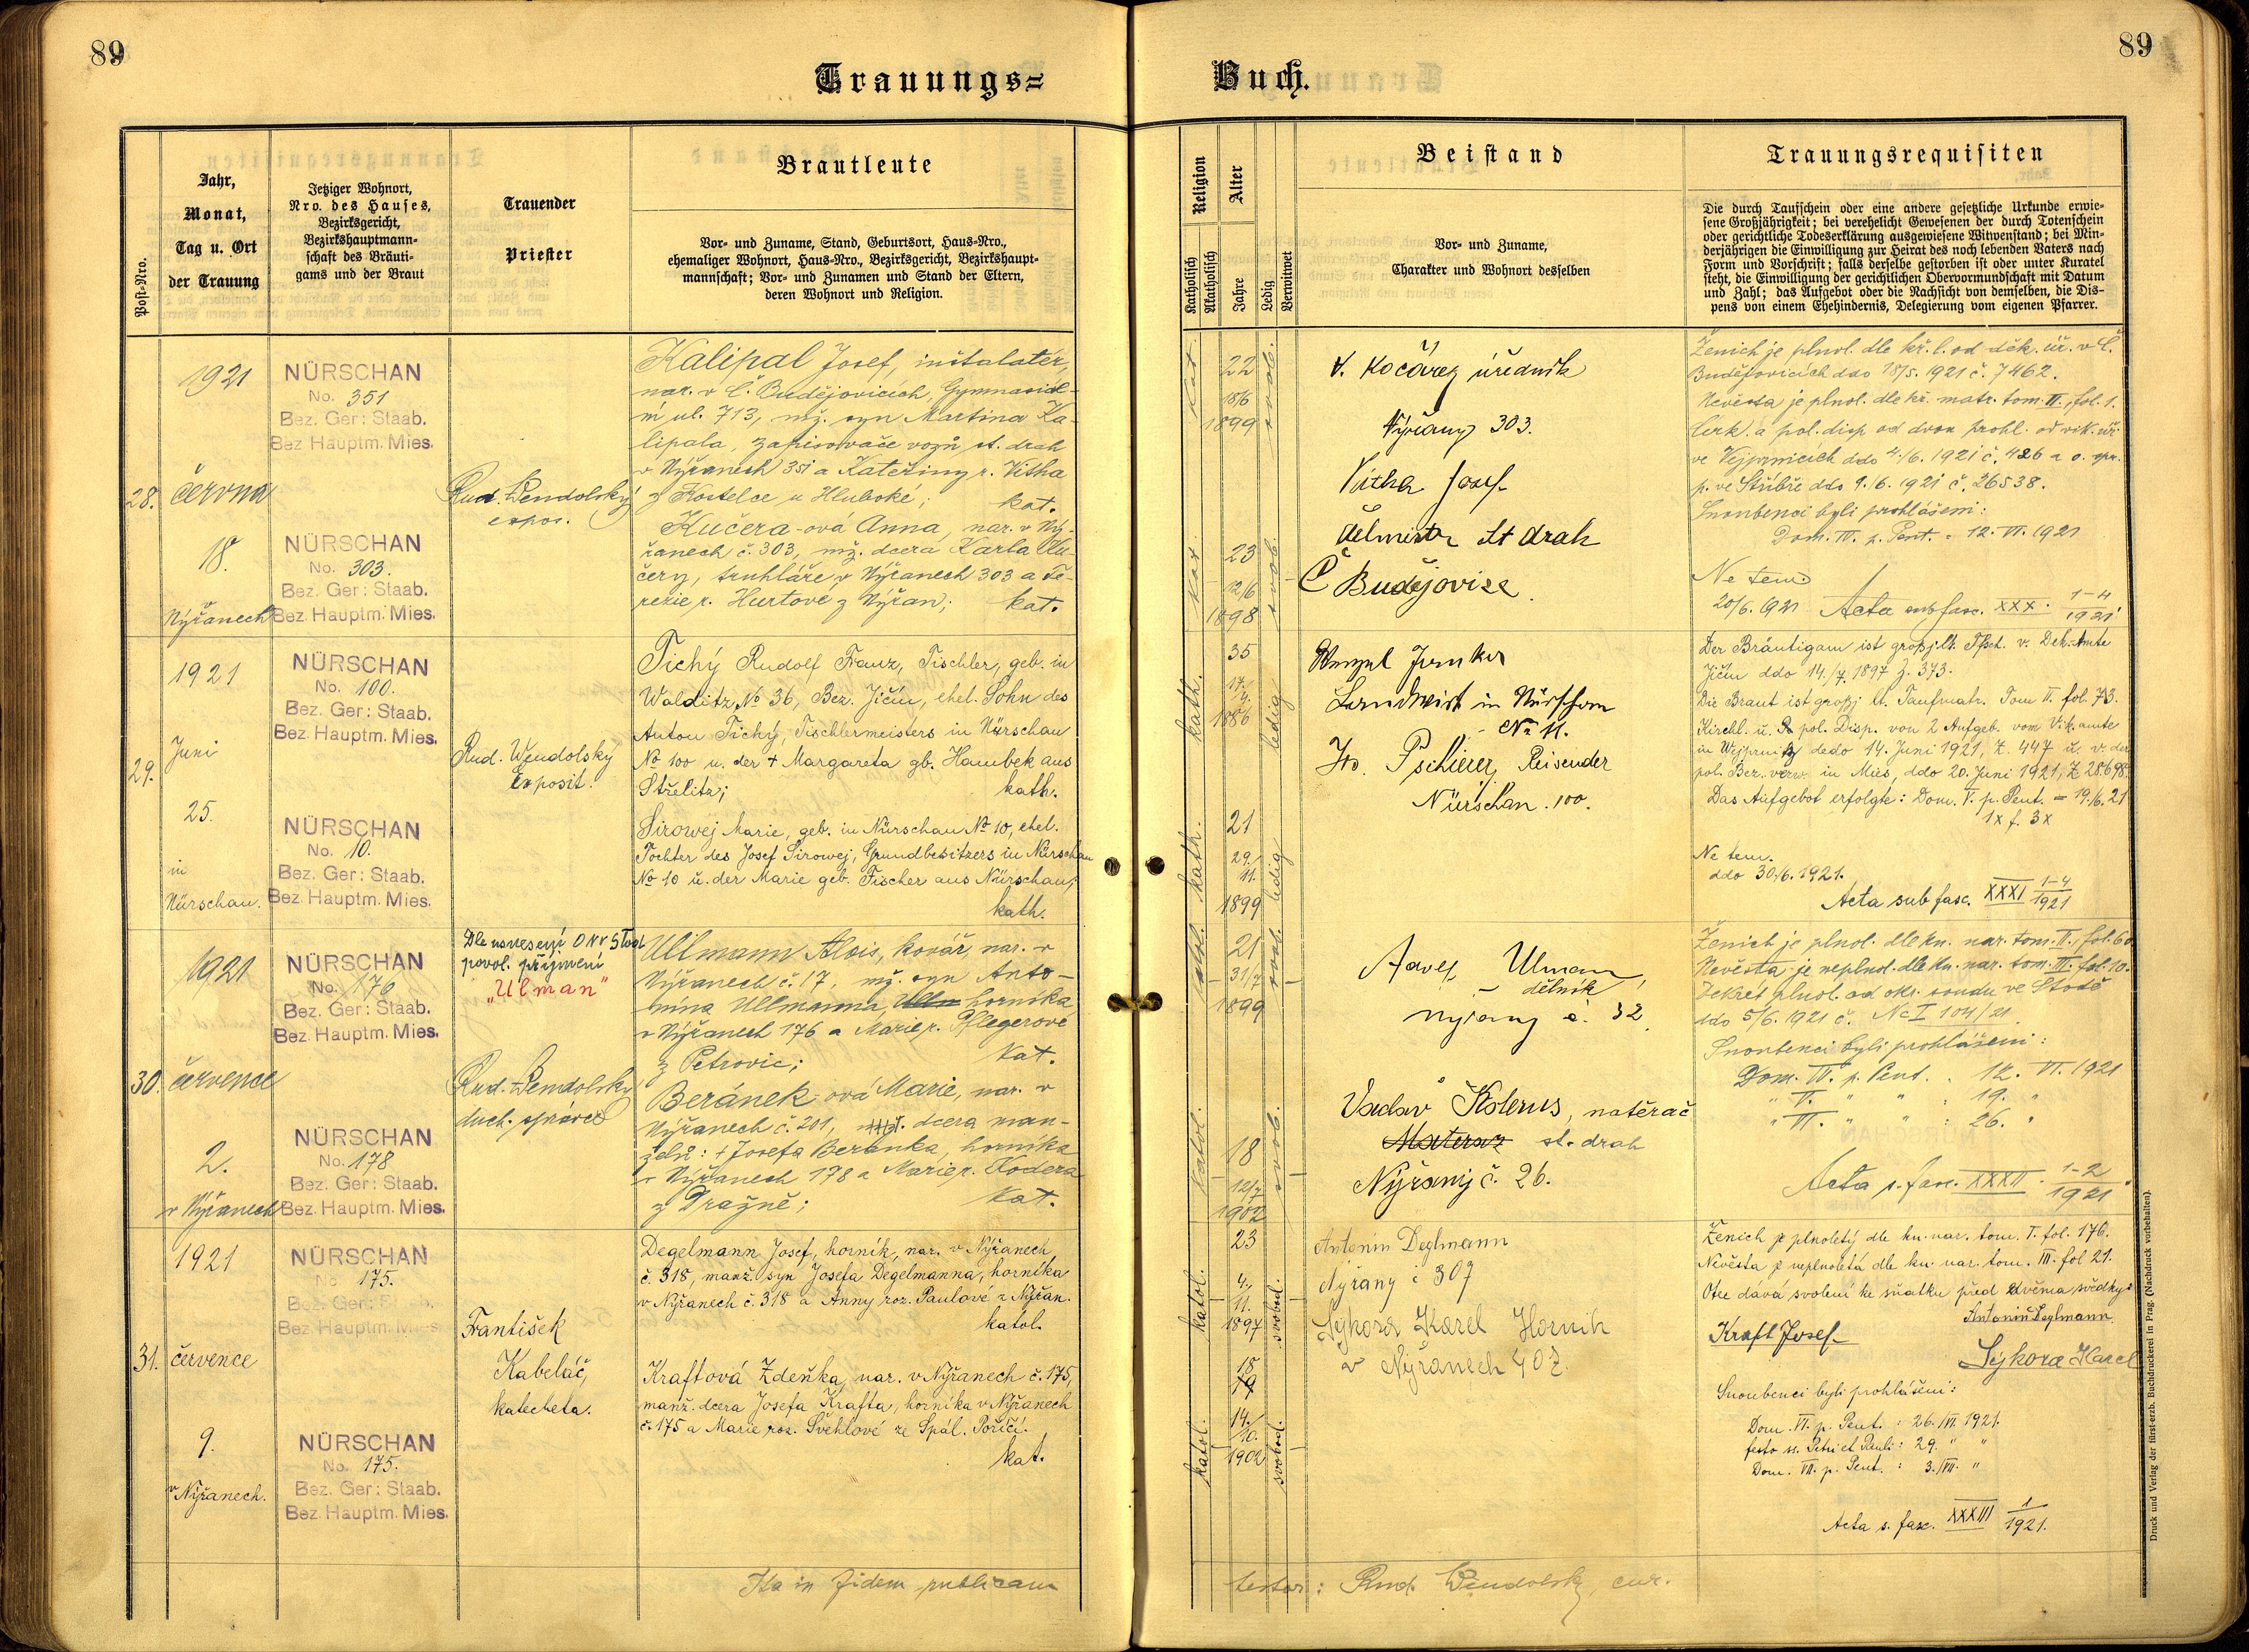 89
89
Trauungs=
Buch.
Post-Nro.
Jahr,
Monat,
Tag u. Ort
der Trauung
Jetziger Wohnort,
Nro. des Hauses,
Bezirksgericht,
Bezirkshauptmann-
schaft des Bräuti-
gams und der Braut
Trauender
Priester
Brautleute
Vor- und Zuname, Stand, Geburtsort, Haus-Nro.,
ehemaliger Wohnort, Haus-Nro., Bezirksgericht, Bezirkshaupt-
mannschaft; Vor- und Zunamen und Stand der Eltern,
deren Wohnort und Religion.
Religion
Katholisch
Akatholisch
Alter
Jahre
Ledig
Verwitwet
Beistand
Vor- und Zuname,
Charakter und Wohnort desselben
Trauungsrequisiten
Die durch Taufschein oder eine andere gesetzliche Urkunde erwie-
sene Großjährigkeit; bei verehelicht Gewesenen der durch Totenschein
oder gerichtliche Todeserklärung ausgewiesene Witwenstand; bei Min-
derjährigen die Einwilligung zur Heirat des noch lebenden Vaters nach
Form und Vorschrift; falls derselbe gestorben ist oder unter Kuratel
steht, die Einwilligung der gerichtlichen Obervormundschaft mit Datum
und Zahl; das Aufgebot oder die Nachsicht von demselben, die Dis-
pens von einem Ehehindernis, Delegierung vom eigenen Pfarrer.
28.
1921
června
18.
v
Nýřanech
NÜRSCHAN
No. 351
Bez. Ger: Staab.
Bez Hauptm. Mies.
NÜRSCHAN
No. 303.
Bez. Ger: Staab.
Bez. Hauptm. Mies.
Rud. Wendolský
expos.
Kalipal Josef, inštalatér,
nar. v Č. Budějovicích, Gymnasiál-
ní ul. 713, mž. syn Martina Ka-
lipala, zapisovače vozů st. drah
v Nýřanech 351 a Kateřiny r. Vitha
z Kostelce u Hluboké; kat.
Kučera-ová Anna, nar. v Ný-
řanech č. 303, mž. dcera Karla Ku-
čery, truhláře v Nýřanech 303 a Te-
rezie r. Hurtové z Nýřan; kat.
kat.
22
18/6
1899
svob.
kat.
23
12/6
1898
svob.
V. Kočárez úředník
Nýřany 303.
Vitha Josef
st drah
Č Budějovice
Ženich je plnol. dle kř. l. od děk. úř. v Č.
Budějovicích ddo 18/5. 1921 č. 7462.
Nevěsta je plnol. dle kř. matr. tom. II., fol. 1.
Cirk. a pol. disp od dvou prohl. od vik. úř.
ve Vejprnicích ddo 4./6. 1921 č. 426 a o. spr.
p. ve Stříbře ddo 9./6. 1921 č. 26538.
Snoubenci byli prohlášeni:
Dom. IV. p. Pent. = 12. VI. 1921
Ne tem.
20/6. 1921 Acta sub fasc. XXX. 1-4/1921
29.
1921
Juni
25.
in
Nürschan.
NÜRSCHAN
No. 100.
Bez. Ger: Staab.
Bez Hauptm. Mies.
NÜRSCHAN
No. 10.
Bez. Ger: Staab.
Bez. Hauptm. Mies.
Rud. Wendolský
Exposit.
Tichý Rudolf Franz, Tischler, geb. in
Walditz, No 36, Bez. Jičín, ehel. Sohn des
Anton Tichý, Tischlermeisters in Nürschan
No 100 u. der + Margareta gb. Hambek aus
Střelitz; kath.
Sirowej Marie, geb. in Nürschan No 10, ehel.
Tochter des Josef Sirowej, Grundbesitzers in Nürschan
No 10 u. der Marie geb. Fischer aus Nürschan;
kath.
kath.
35
17./
4.
1886
ledig
kath.
21
29./
11.
1899
ledig
Wenzl Junker
Landwirt in Nürschan
No 11.
Jos. Pschierer, Reisender
Nürschan. 100.
Der Bräutigam ist großj. lt. Tfsch. v. Dek.-Amte
Jičín ddo 14./7. 1897 Z. 373.
Die Braut ist großj. lt. Taufmatr. Tom II. fol. 73.
Kirchl. u. pol. Disp. von 2 Aufgeb. vom Vik. amte
in Wejprnitz dedo 14. Juni 1921, Z. 447 u. v. der
pol. Bez. verw. in Mies, ddo 20. Juni 1921, Z 28.698.
Das Aufgebot erfolgte: Dom. V. p. Pent. = 19./6. 21
1x f. 3x
Ne tem.
ddo 30./6. 1921.
Acta sub fasc. XXXI 1-4/1921
30.
1921
července
2.
v Nýřanech
NÜRSCHAN
No. 176
Bez. Ger: Staab.
Bez. Hauptm. Mies.
NÜRSCHAN
No. 178
Bez. Ger: Staab.
Bez. Hauptm. Mies.
Dle usnesení ONV Stod
povol. příjmení
„Ulman"
Rud. Wendolský
duch. správce
Ullmann Alois, kovář, nar. v
Nýřanech č. 17, mž. syn Anto-
nína Ullmanna, horníka
v Nýřanech 176 a Marie r. Pflegerové
z Petrovic; kat.
Beránek-ová Marie, nar. v
Nýřanech č. 201, dcera man-
želů: + Josefa Beránka, horníka
v Nýřanech 178 a Marie r. Kodera
z Dražně; kat.
katol.
21
31/7
1899
svob.
katol.
18
12/7
1902
svob.
Ulman,
dělník
Nýřany č. 32
Václav Kolerus, natěrač
st. drah
Nýřany č. 26.
Ženich je plnol. dle kn. nar. tom. II., fol. 60.
Nevěsta je neplnol. dle kn. nar. tom. III. fol. 10.
Dekret plnol. od okr. soudu ve Stodě
ddo 5/6. 1921 č. Nc I 104/21.
Snoubenci byli prohlášeni:
Dom. IV. p. Pent. : 12. VI. 1921
" V. " " : 19. "
" VI. " " : 26. "
Acta s. fasc. XXXII. 1-2/1921
31.
1921
července
9.
v Nýřanech.
NÜRSCHAN
No. 175.
Bez. Ger: Staab.
Bez Hauptm. Mies
NÜRSCHAN
No. 175.
Bez. Ger: Staab.
Bez. Hauptm. Mies.
František
Kabeláč,
katecheta.
Degelmann Josef, horník, nar. v Nýřanech
č. 318, manž. syn Josefa Degelmanna, horníka
v Nýřanech č. 318 a Anny roz. Paulové z Nýřan.
katol.
Kraftová Zdeňka, nar. v Nýřanech č. 175,
manž. dcera Josefa Krafta, horníka v Nýřanech
č. 175 a Marie roz. Švehlové ze Spál. Poříčí.
kat.
katol.
23
4./
11.
1897
svobod.
katol.
18
19
14./
10.
1902
svobod.
Antonín Deglmann
Nýřany č 307
Sýkora Karel Horník
v Nýřanech 407
Ženich je plnoletý dle kn. nar. tom. I. fol. 176.
Nevěsta je neplnoletá dle kn. nar. tom. III. fol 21.
Otec dává svolení ke sňatku před dvěma svědky:
Antonín Deglmann
Kraft Josef
Sýkora Karel
Snoubenci byli prohlášeni:
Dom. VI. p. Pent. : 26./VI. 1921.
festo ss. Petri et Pauli : 29. " "
Dom. VII. p. Pent. : 3./VII. "
Acta s. fasc. XXXIII 1/1921.
Ita in fidem publicam
testor: Rud. Wendolský, cur.
Druck und Verlag der fürst-erzb. Buchdruckerei in Prag. (Nachdruck vorbehalten).